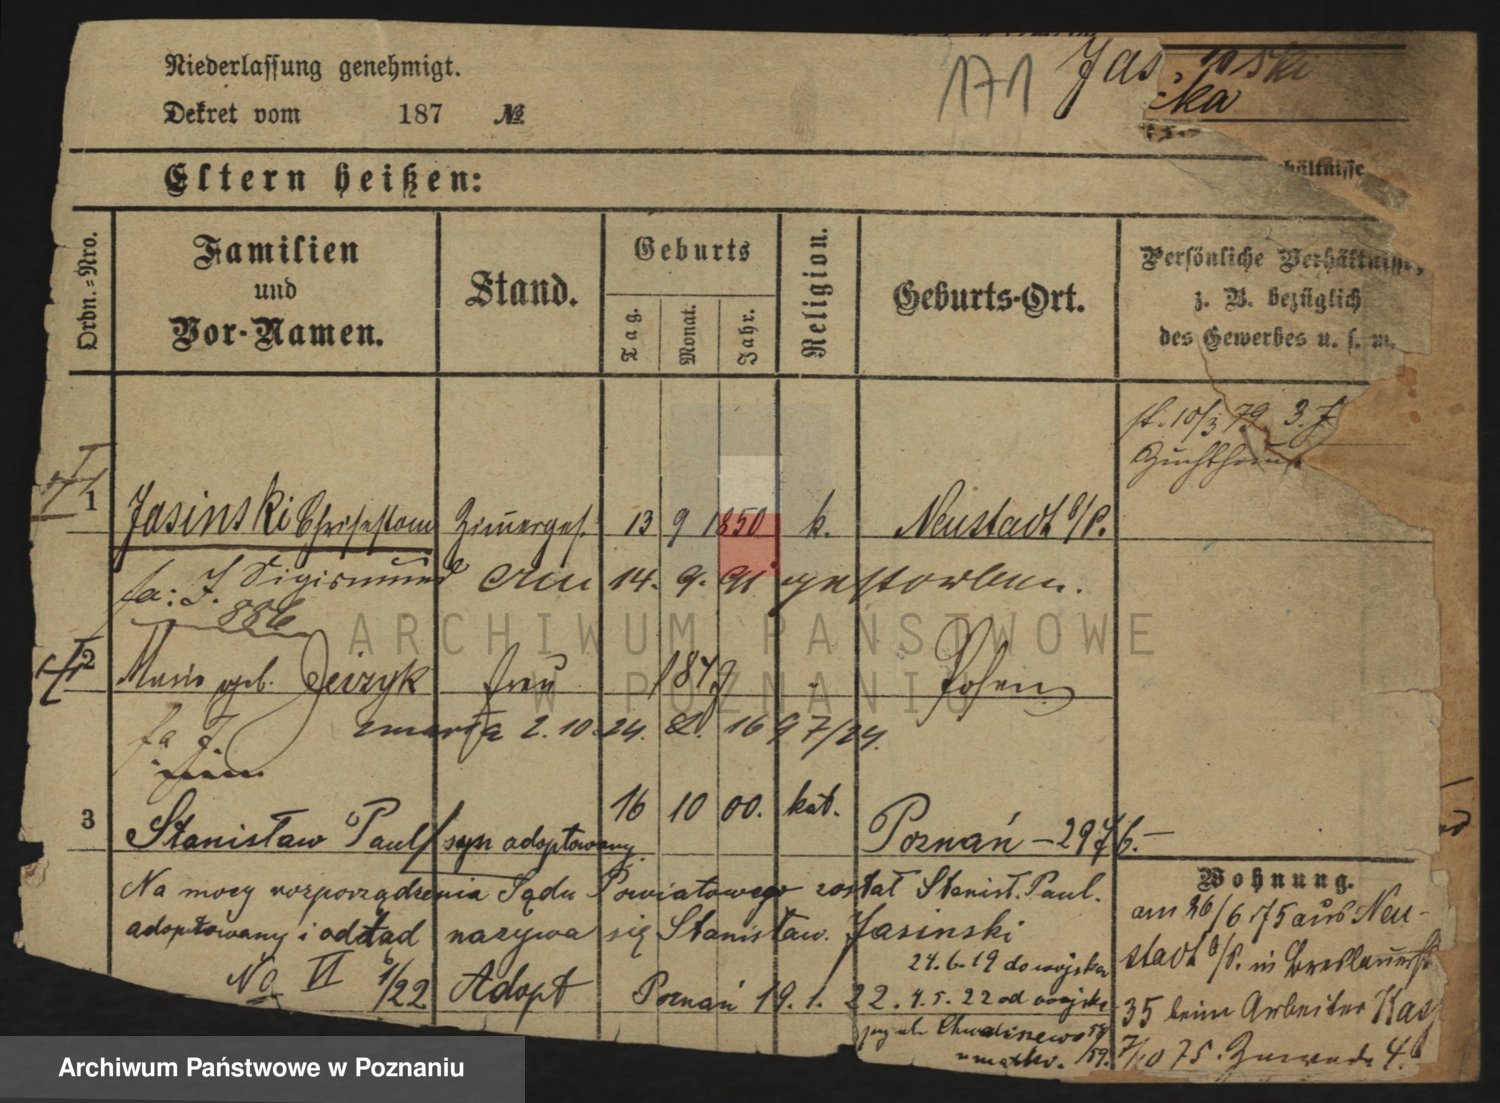 Niederlassung genehmigt.
Dekret vom 187 №
171
Jas
ński
cka
Eltern heißen:
hältnisse
Ordn.=Nro.
Familien
und
Vor-Namen.
Stand.
Geburts
Tag.
Monat.
Jahr.
Religion.
Geburts-Ort.
Persönliche Verhältnisse,
z. B. bezüglich
des Gewerbes u. s. w.
10/3 79 3. J
Zuchthaus
1 Jasinski Chrisostom Zimerges. 13 9 1850 k. Neustadt b/P.
fa: J. Sigismund am 14. 9. 91 gestorben.
886
2 Marie geb. Jeizyk frau 1849 Posen
fa J. zmarła 2. 10. 24. 1697/24.
3 Stanisław Paul syn adoptowany 16 10 00. kat. Poznań – 2976. –
Na mocy rozporządzenia Sądu Powiatowego został Stanisł. Paul.
adoptowany i odtąd nazywa się Stanisław. Jasinski
24. 6. 19 do wojska
No VI 6/22 Adopt Poznań 19. 1. 22. 4. 5. 22 od wojska
Wohnung.
am 26/6 75 aus Neu-
stadt b/P. in Breslauerst
35 beim Arbeiter Kas
7/10 75. Zawade 4.
ARCHIWUM PAŃSTWOWE
W POZNANIU
Archiwum Państwowe w Poznaniu